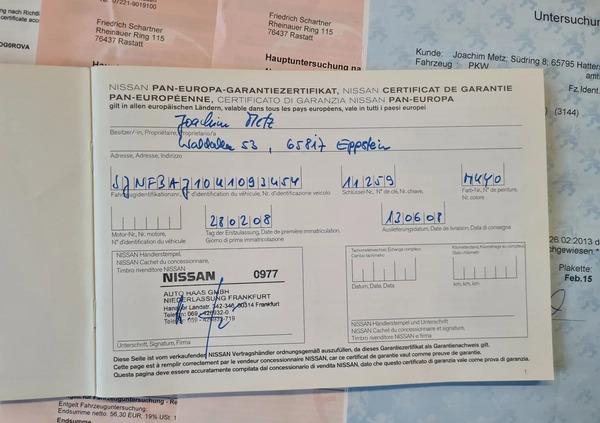 07221-9019100
Friedrich Schartner
Rheinauer Ring 115
76437 Rastatt
Friedrich Schartner
Rheinauer Ring 115
76437 Rastatt
Hauptuntersuchung na
Untersuchun
Kunde: Joachim Metz; Südring 8; 65795 Hatters
Fahrzeug: PKW
Fz.Ident.
(3144)
NISSAN PAN-EUROPA-GARANTIEZERTIFIKAT, NISSAN CERTIFICAT DE GARANTIE
PAN-EUROPÉENNE, CERTIFICATO DI GARANZIA NISSAN PAN-EUROPA
gilt in allen europäischen Ländern, valable dans tous les pays européens, vale in tutti i paesi europei
Joachim Metz
Besitzer/-in, Propriétaire, Proprietario/a
53, 65817 Eppstein
Adresse, Adresse, Indirizzo
SJNFBAJ10U1093454 11259
Fahrzeugidentifikationsnr., N° d'identification du véhicule, Nr. d'identificazione veicolo
Schlüssel-Nr., N° de clé, Nr. chiave
Farb-Nr., N° de peinture,
Nr. colore
280208 130608
Motor-Nr., Nr. motore,
N° d'identification du véhicule
Tag der Erstzulassung, Date de première immatriculation,
Giorno di prima immatricolazione
Auslieferungsdatum, Date de livraison, Data di consegna
NISSAN Händlerstempel,
NISSAN Cachet du concessionnaire,
Timbro rivenditore NISSAN
NISSAN 0977
AUTO HAAS GMBH
NIEDERLASSUNG FRANKFURT
Hanauer Landstr. 342-346 60314 Frankfurt
Unterschrift, Signature, Firma
Datum, Data, Data
km, km, km
NISSAN Händlerstempel und Unterschrift
NISSAN Cachet du concessionnaire et signature,
Timbro rivenditore NISSAN e firma
Diese Seite ist vom verkaufenden NISSAN Vertragshändler ordnungsgemäß auszufüllen, da dieses Garantiezertifikat als Garantienachweis gilt.
Cette page est à remplir correctement par le vendeur concessionnaire NISSAN, car ce certificat de garantie vaut comme preuve de garantie.
Questa pagina deve essere accuratamente compilata dal concessionario di vendita NISSAN, dato che questo certificato di garanzia vale come prova di garanzia.
1
26.02.2013 d
Plakette:
Feb 15
Entgelt Fahrzeuguntersuchung
Endsumme netto 56,30 EUR, 19% USt.